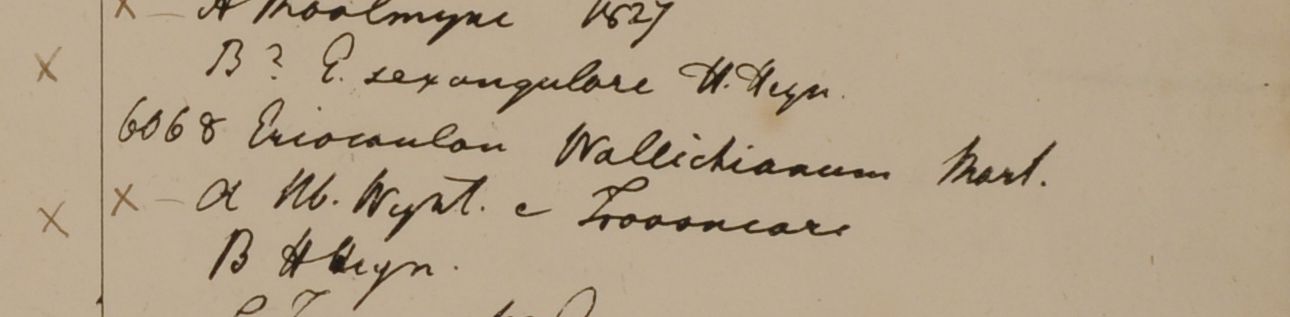 × — A Moolmyne 1827
× B? E. sexangulare H. Heyn.
6068 Eriocaulon Wallichianum Mart.
× × — a Hb. Wight. e Travancare
B H Heyn.